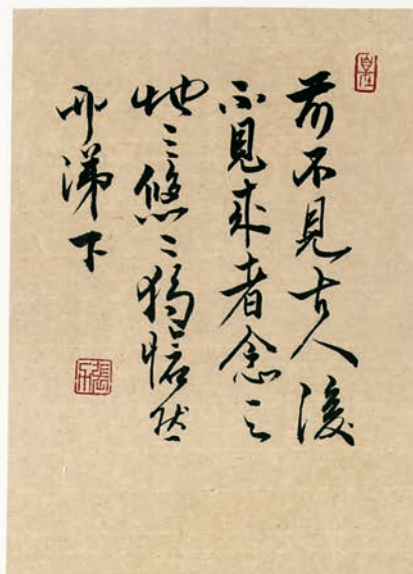 前不見古人後
不見来者念天
地之悠〻獨愴然
而涕下